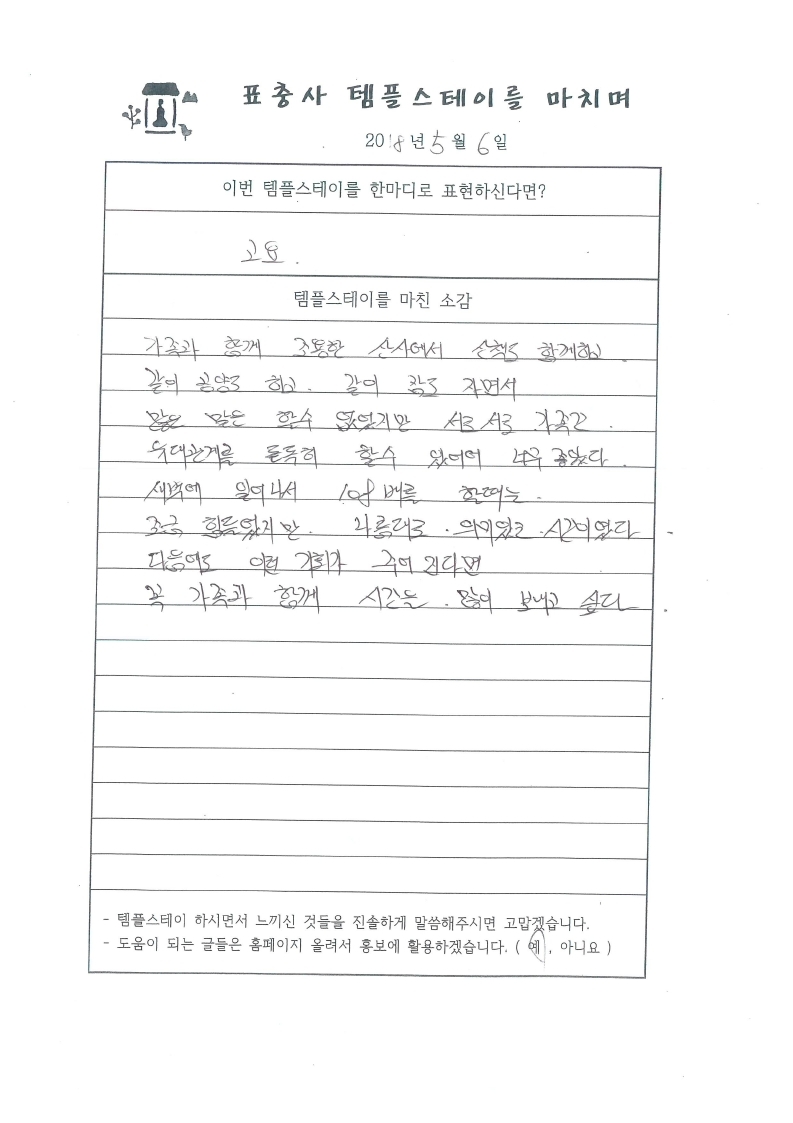 표충사 템플스테이를 마치며
2018년 5월 6일
이번 템플스테이를 한마디로 표현하신다면?
고요.
템플스테이를 마친 소감
가족과 함께 조용한 산사에서 산책도 함께하고.
같이 공양도 하고. 같이 잠도 자면서
많은 말은 할수 없었지만 서로서로 가족간.
유대관계를 돈독히 할수 있어서 너무 좋았다.
새벽에 일어나서 108배를 할때는.
조금 힘들었지만. 나름대로. 의미있는. 시간이였다
다음에도 이런 기회가 주어진다면
꼭 가족과 함께 시간을. 많이 보내고 싶다.
- 템플스테이 하시면서 느끼신 것들을 진솔하게 말씀해주시면 고맙겠습니다.
- 도움이 되는 글들은 홈페이지 올려서 홍보에 활용하겠습니다. ( 예 , 아니요 )